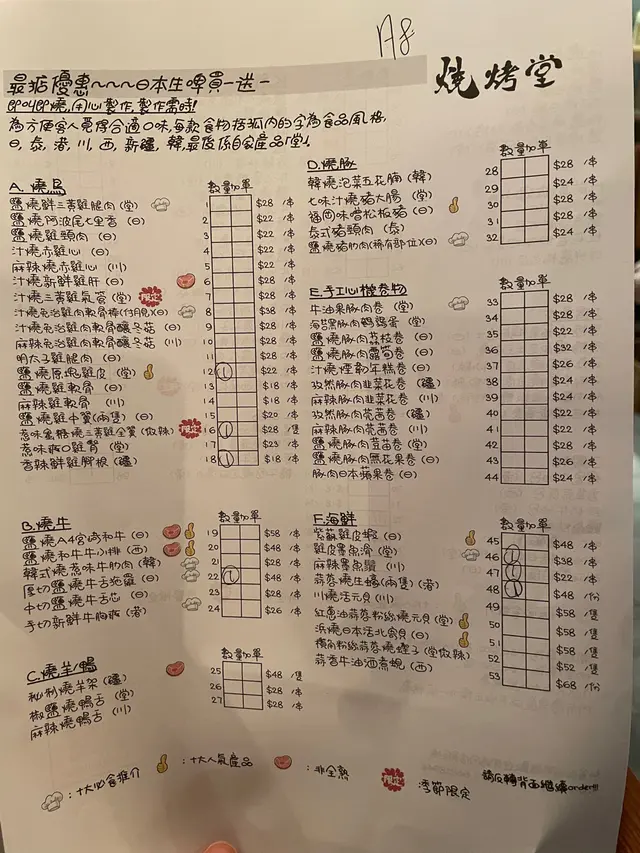 A8
最抵優惠~~~日本生啤買一送一
燒烤堂
即叫即燒,用心製作,製作需時!
為方便客人覓得合適口味,每款食物括弧內的字為食品風格,
日,泰,港,川,西,新疆,韓,最後係自家產品「堂」.
A. 燒鳥
數量加單
鹽燒鮮三黃雞腿肉(堂) 1 $28 /串
鹽燒阿波尾七里香(日) 2 $22 /串
鹽燒雞頸肉(日) 3 $22 /串
汁燒赤雞心(日) 4 $22 /串
麻辣燒赤雞心(川) 5 $22 /串
汁燒新鮮雞肝(日) 6 $28 /串
汁燒三黃雞氣管(堂) 限定 7 $28 /串
汁燒免治雞肉軟骨棒(日) 8 $38 /串
汁燒免治雞肉軟骨釀冬菇(日) 9 $28 /串
麻辣免治雞肉軟骨釀冬菇(川) 10 $28 /串
明太子雞腿肉(日) 11 $28 /串
鹽燒原塊雞皮(堂) 12 1 $22 /串
鹽燒雞軟骨(日) 13 $18 /串
麻辣雞軟骨(川) 14 $18 /串
鹽燒雞中翼(兩隻)(日) 15 $20 /串
惹味蜜糖燒三黃雞全翼(微辣) 限定 16 1 $28 /隻
惹味彈口雞腎(堂) 17 $23 /串
香辣鮮雞腳板(疆) 18 1 $18 /串
B. 燒牛
數量加單
鹽燒A4宮崎和牛(日) 19 $58 /串
鹽燒和牛牛小排(西) 20 $48 /串
韓式燒惹味牛肋肉(韓) 21 $28 /串
厚切鹽燒牛舌(日) 22 1 $48 /串
中切鹽燒牛舌芯(日) 23 $28 /串
手切新鮮牛胸爽(港) 24 $26 /串
C. 燒羊/鴨
數量加單
秘制燒羊架(疆) 25 $48 /隻
椒鹽燒鴨舌(堂) 26 $28 /串
麻辣燒鴨舌(川) 27 $28 /串
D. 燒豚
數量加單
韓燒泡菜五花腩(韓) 28 $28 /串
七味汁燒豬大腸(堂) 29 $24 /串
福岡味噌松板豬(日) 30 $28 /串
泰式豬頸肉(泰) 31 $28 /串
鹽燒豬肋肉(稀有部位)(日) 32 $24 /串
E. 手工心機卷物
數量加單
牛油果豚肉卷(堂) 33 $28 /串
海苔黑豚肉鵪鶉蛋(堂) 34 $28 /串
鹽燒豚肉荔枝卷(日) 35 $22 /串
鹽燒豚肉露筍卷(日) 36 $32 /串
汁燒煙韌年糕卷(日) 37 $26 /串
孜然豚肉韭菜花卷(疆) 38 $24 /串
麻辣豚肉韭菜花卷(川) 39 $24 /串
孜然豚肉芫茜卷(疆) 40 $22 /串
麻辣豚肉芫茜卷(川) 41 $22 /串
鹽燒豚肉荳苗卷(堂) 42 $28 /串
鹽燒豚肉無花果卷(日) 43 $26 /串
豚肉日本蘋果卷(日) 44 $24 /串
F. 海鮮
數量加單
紫蘇雞皮蝦(日) 45 $48 /串
雞皮墨魚滑(堂) 46 1 $38 /串
麻辣墨魚鬚(川) 47 1 $22 /串
蒜蓉燒生蠔(兩隻)(港) 48 1 $48 /串
川燒活元貝(川) 49 $58 /隻
紅蔥油蒜蓉粉絲燒元貝(堂) 50 $58 /隻
浜燒日本活北寄貝(日) 51 $58 /隻
橫角粉絲蒜蓉燒蟶子(堂微辣) 52 $52 /隻
蒜香牛油酒煮蜆(西) 53 $68 /份
:十大必食推介
:十大人氣產品
:非全熟
限定 :季節限定
請反轉背面繼續order!!!